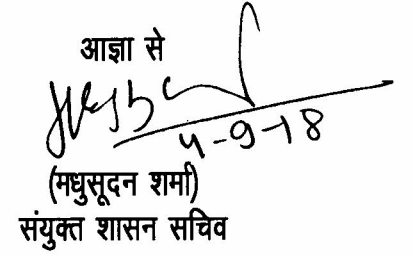 आज्ञा से
4-9-18
(मधुसूदन शर्मा)
संयुक्त शासन सचिव